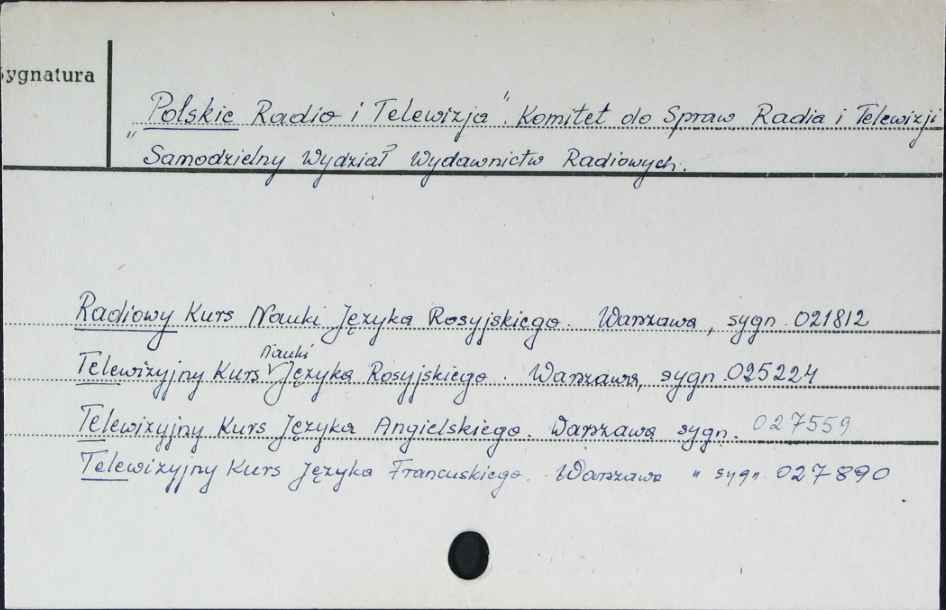 Sygnatura
„Polskie Radio i Telewizja". Komitet do Spraw Radia i Telewizji
Samodzielny Wydział Wydawnictw Radiowych.
Radiowy Kurs Nauki Języka Rosyjskiego. Warszawa, sygn. 021812
Telewizyjny Kurs Nauki Języka Rosyjskiego. Warszawa, sygn. 025224
Telewizyjny Kurs Języka Angielskiego. Warszawa sygn. 027559
Telewizyjny Kurs Języka Francuskiego. Warszawa " sygn 027890